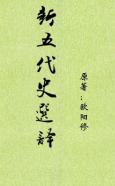 新五代史選譯
原著：欧阳修